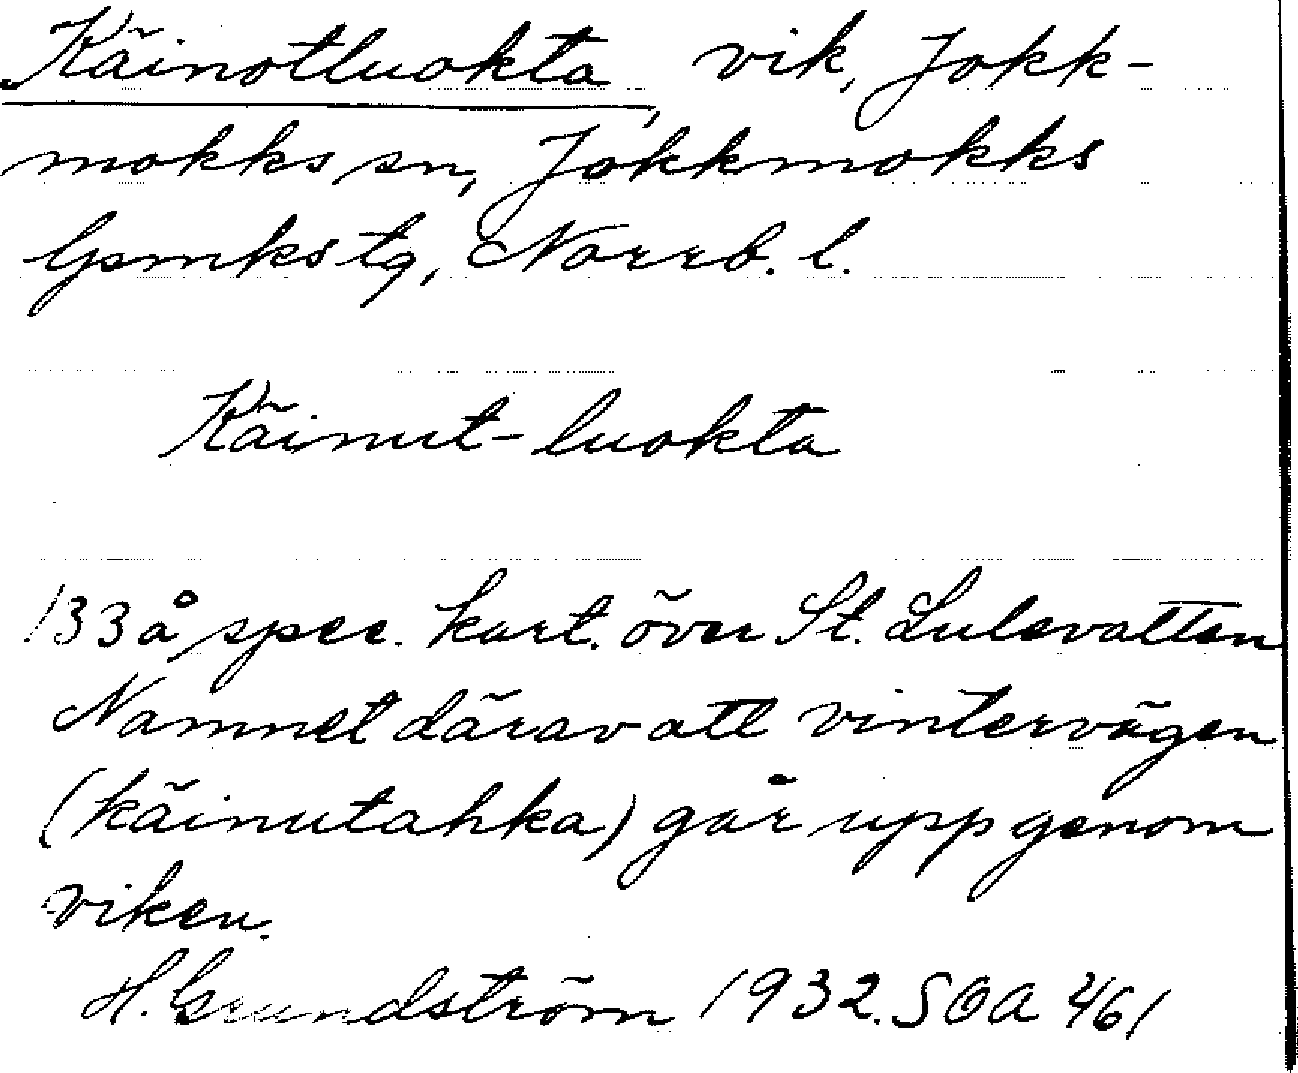 Käinotluokta, vik, Jokk-
mokks sn, Jokkmokks
lpsmkstg, Norrb. l.
Käinut-luokta
133 å spec. kart. över St. Lulevatten
Namnet därav att vintervägen
(käinutahka) går upp genom
viken.
H. Grundström 1932. SOA 461